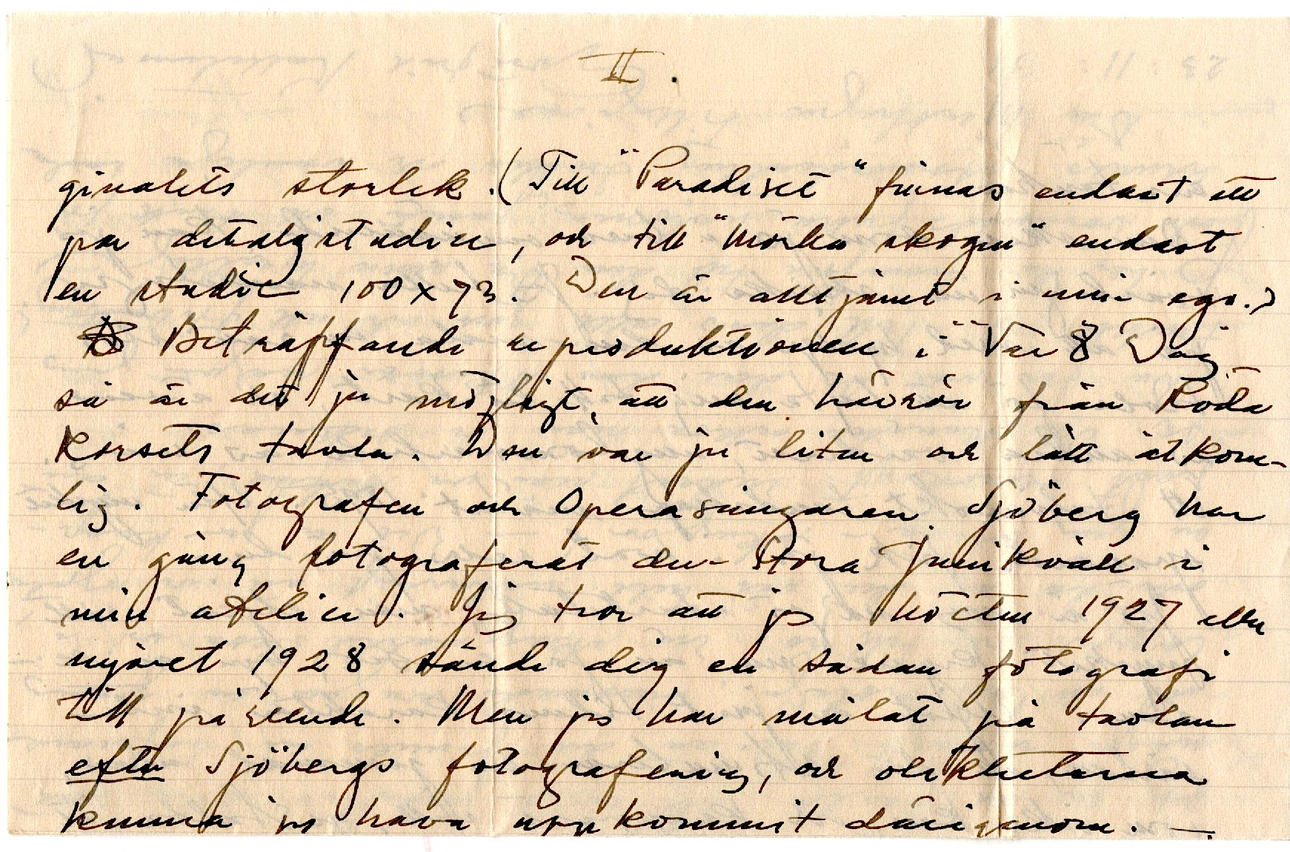 II.
ginalets storlek. (Till "Paradiset" finnas endast ett
par detaljstudier, och till "Mörka skogen" endast
en studie 100x73. Den är alltjämt i min ego.)
Beträffande reproduktionen i "Vår 8 Dag"
så är det ju möjligt, att den härrör från Röda
Korsets tavla. Den var ju liten och lätt åtkom-
lig. Fotografen och Operasångaren Sjöberg har
en gång fotograferat den stora Junikväll i
min atelier. Jag tror att jag hösten 1927 eller
nyåret 1928 sände dig en sådan fotografi
till påseende. Men jag har målat på tavlan
efter Sjöbergs fotografering, och olikheterna
kunna ju hava uppkommit därigenom. —